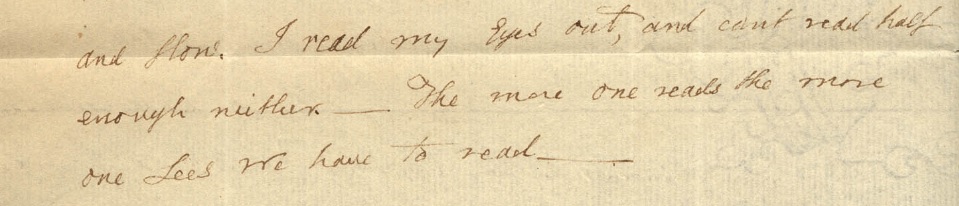 and slow. I read my Eyes out, and cant read half
enough neither — The more one reads the more
one sees we have to read —